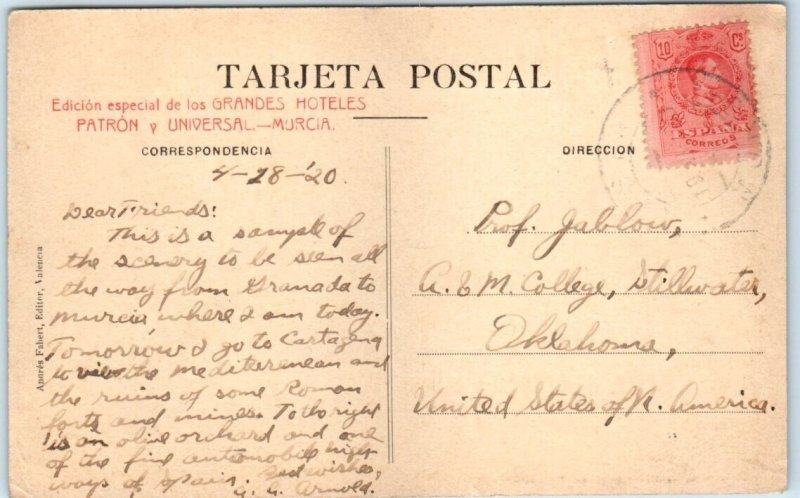 TARJETA POSTAL
Edición especial de los GRANDES HOTELES
PATRÓN y UNIVERSAL.—MURCIA.
CORRESPONDENCIA
4-28-'20.
Dear Friends:
This is a sample of
the scenery to be seen all
the way from Granada to
Murcia where I am today.
Tomorrow I go to Cartagena
to view the Mediterrenean and
the ruins of some Roman
forts and mines. To the right
is an olive orchard and one
of the fine automobile high-
ways of Spain. Good wishes,
Arnold.
Andrés Fabert, Editor, Valencia
DIRECCION
Prof. Jablow,
A. & M. College, Stillwater,
Oklahoma,
United States of N. America.
10 Cs
ESPAÑA
CORREOS